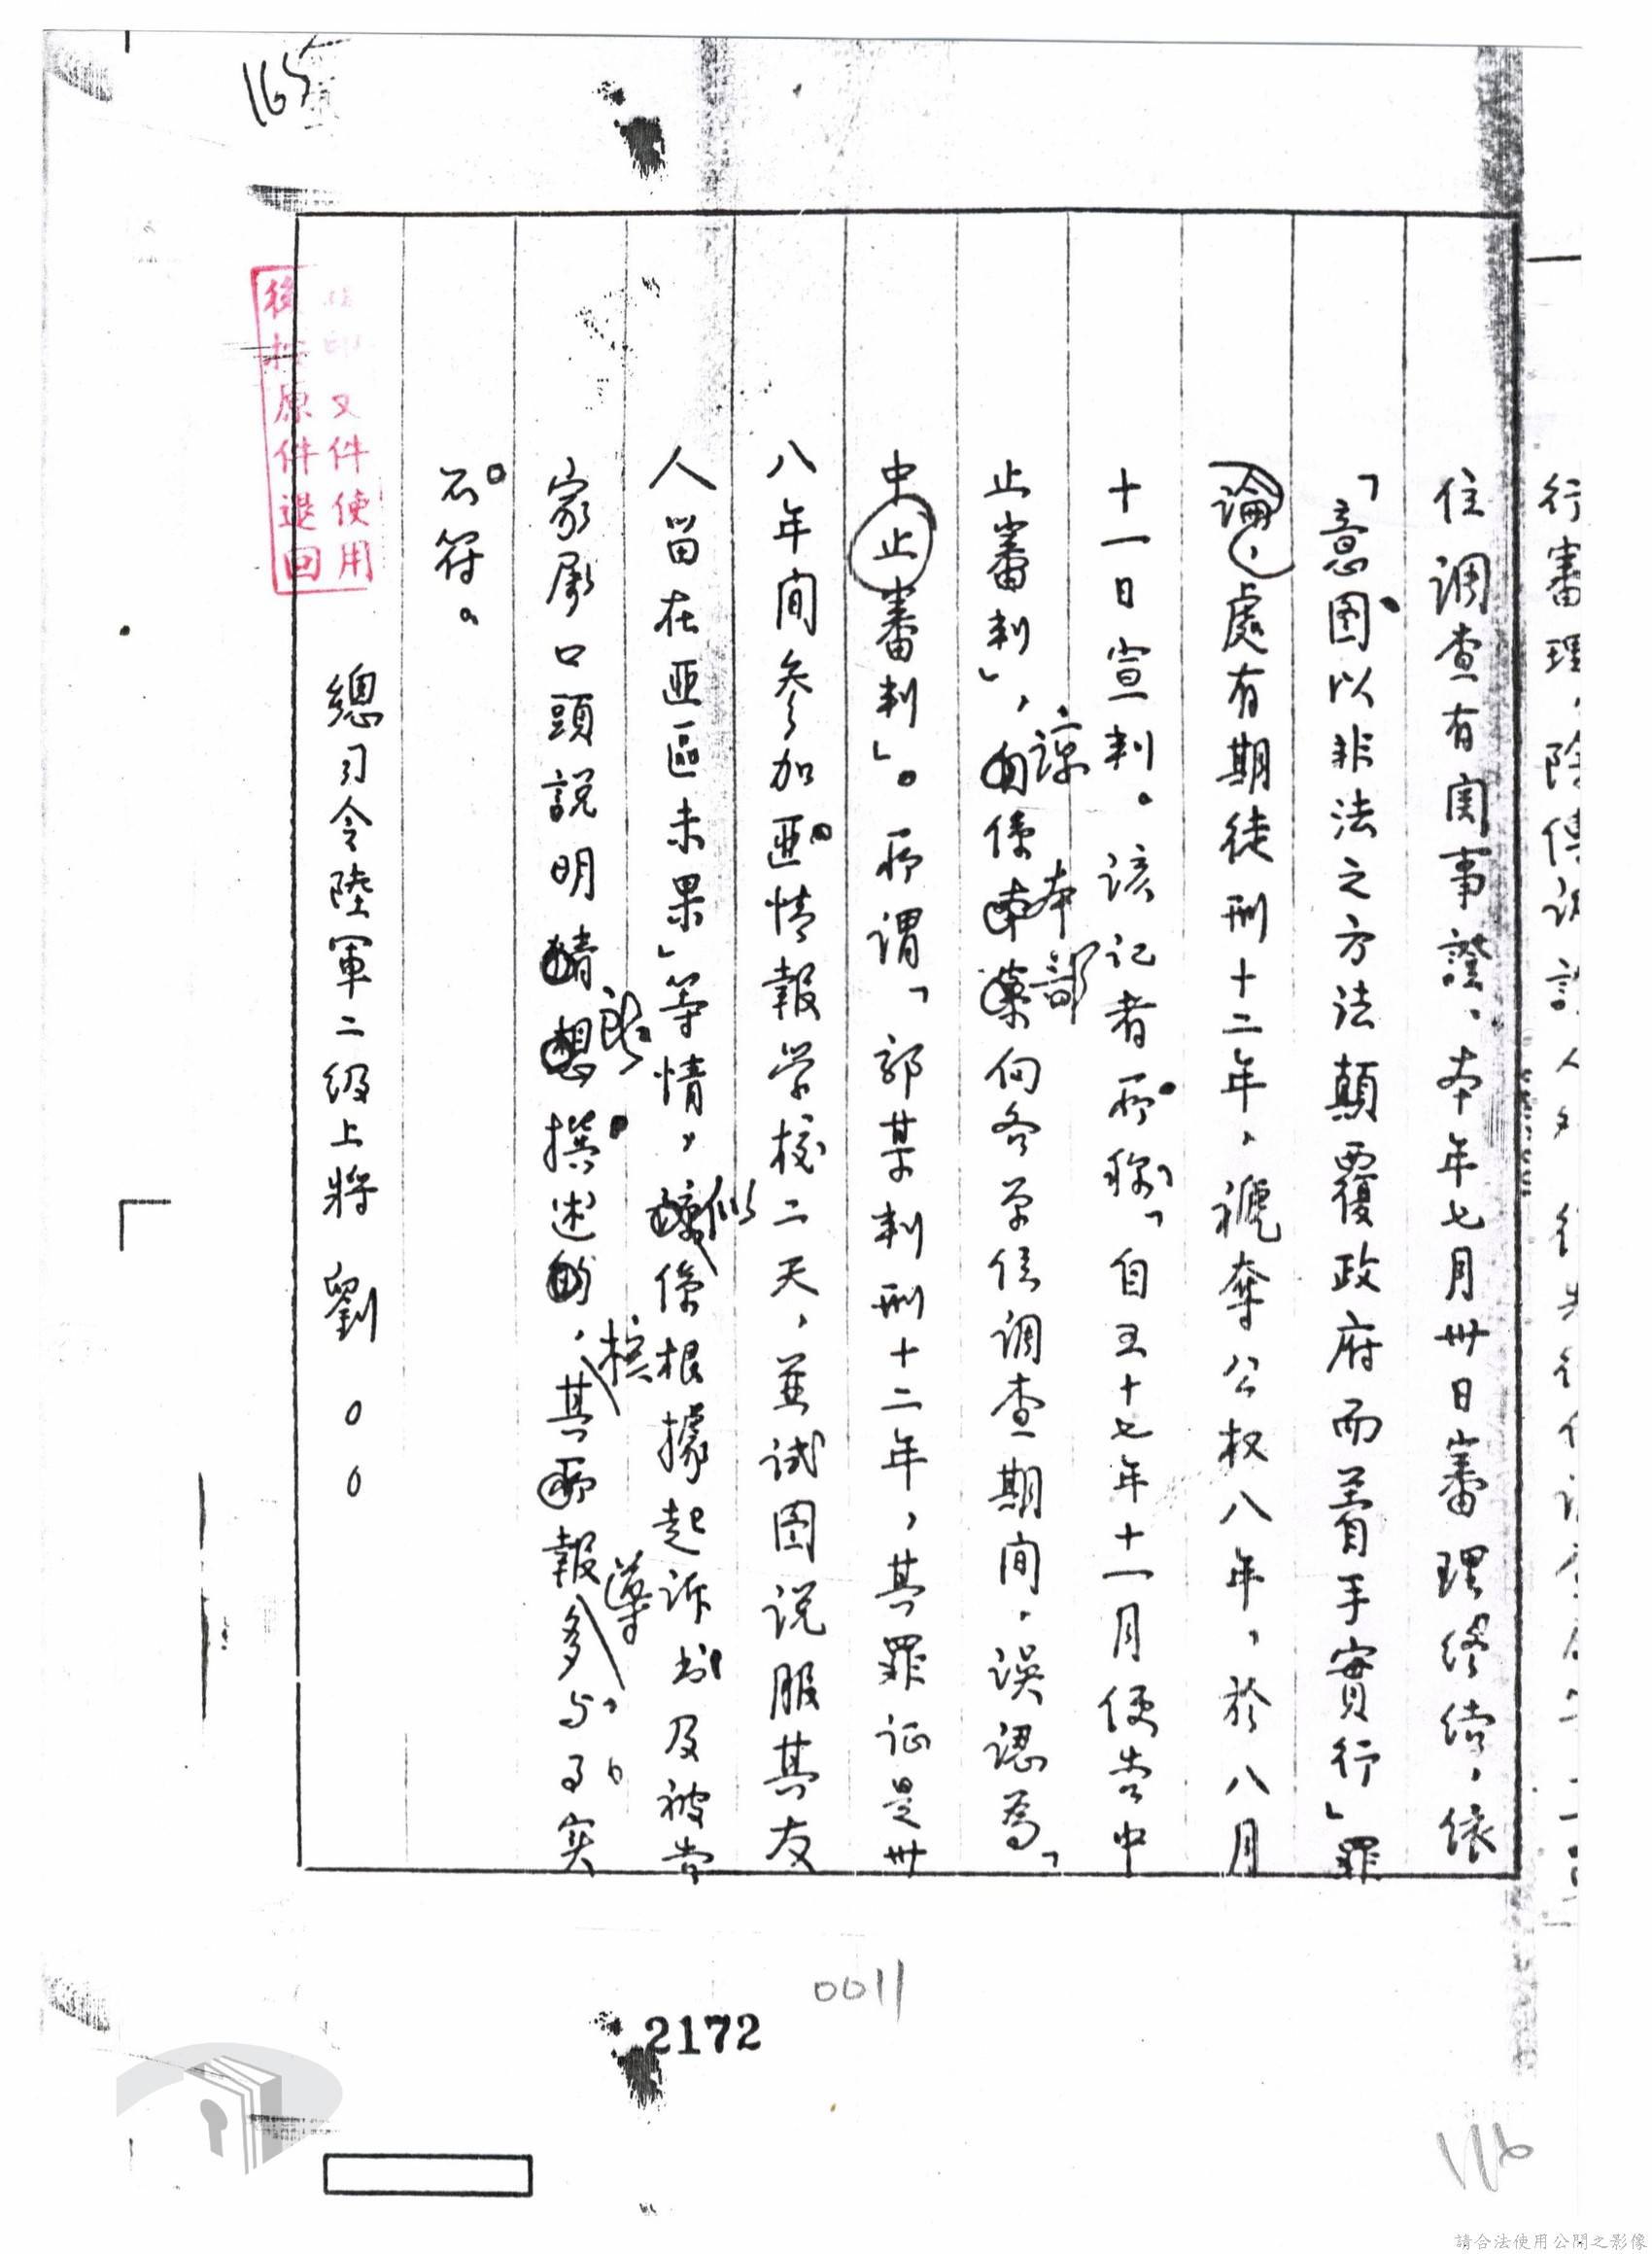 165
行審理，除傳訊
住調查有関事證，本年七月卅日審理終結，依
「意图以非法之方法顛覆政府而著手實行」罪
論，處有期徒刑十二年，褫奪公权八年，於八月
十一日宣判。該记者所称「自五十七年十一月便告中
止審判」，諒係本部向各单位调查期间，误認為「
中止審判」。所谓「郭某判刑十二年，其罪证是卅
八年间参加匪情報学校二天，並试图说服其友
人留在匪區未果」等情，似係根據起诉书及被告
家屬口頭説明 撰述，核其報導与事实
不符。
總司令陸軍二級上將 劉 ○○
文件使用
後 原件退回
0011
2172
116
請合法使用公開之影像